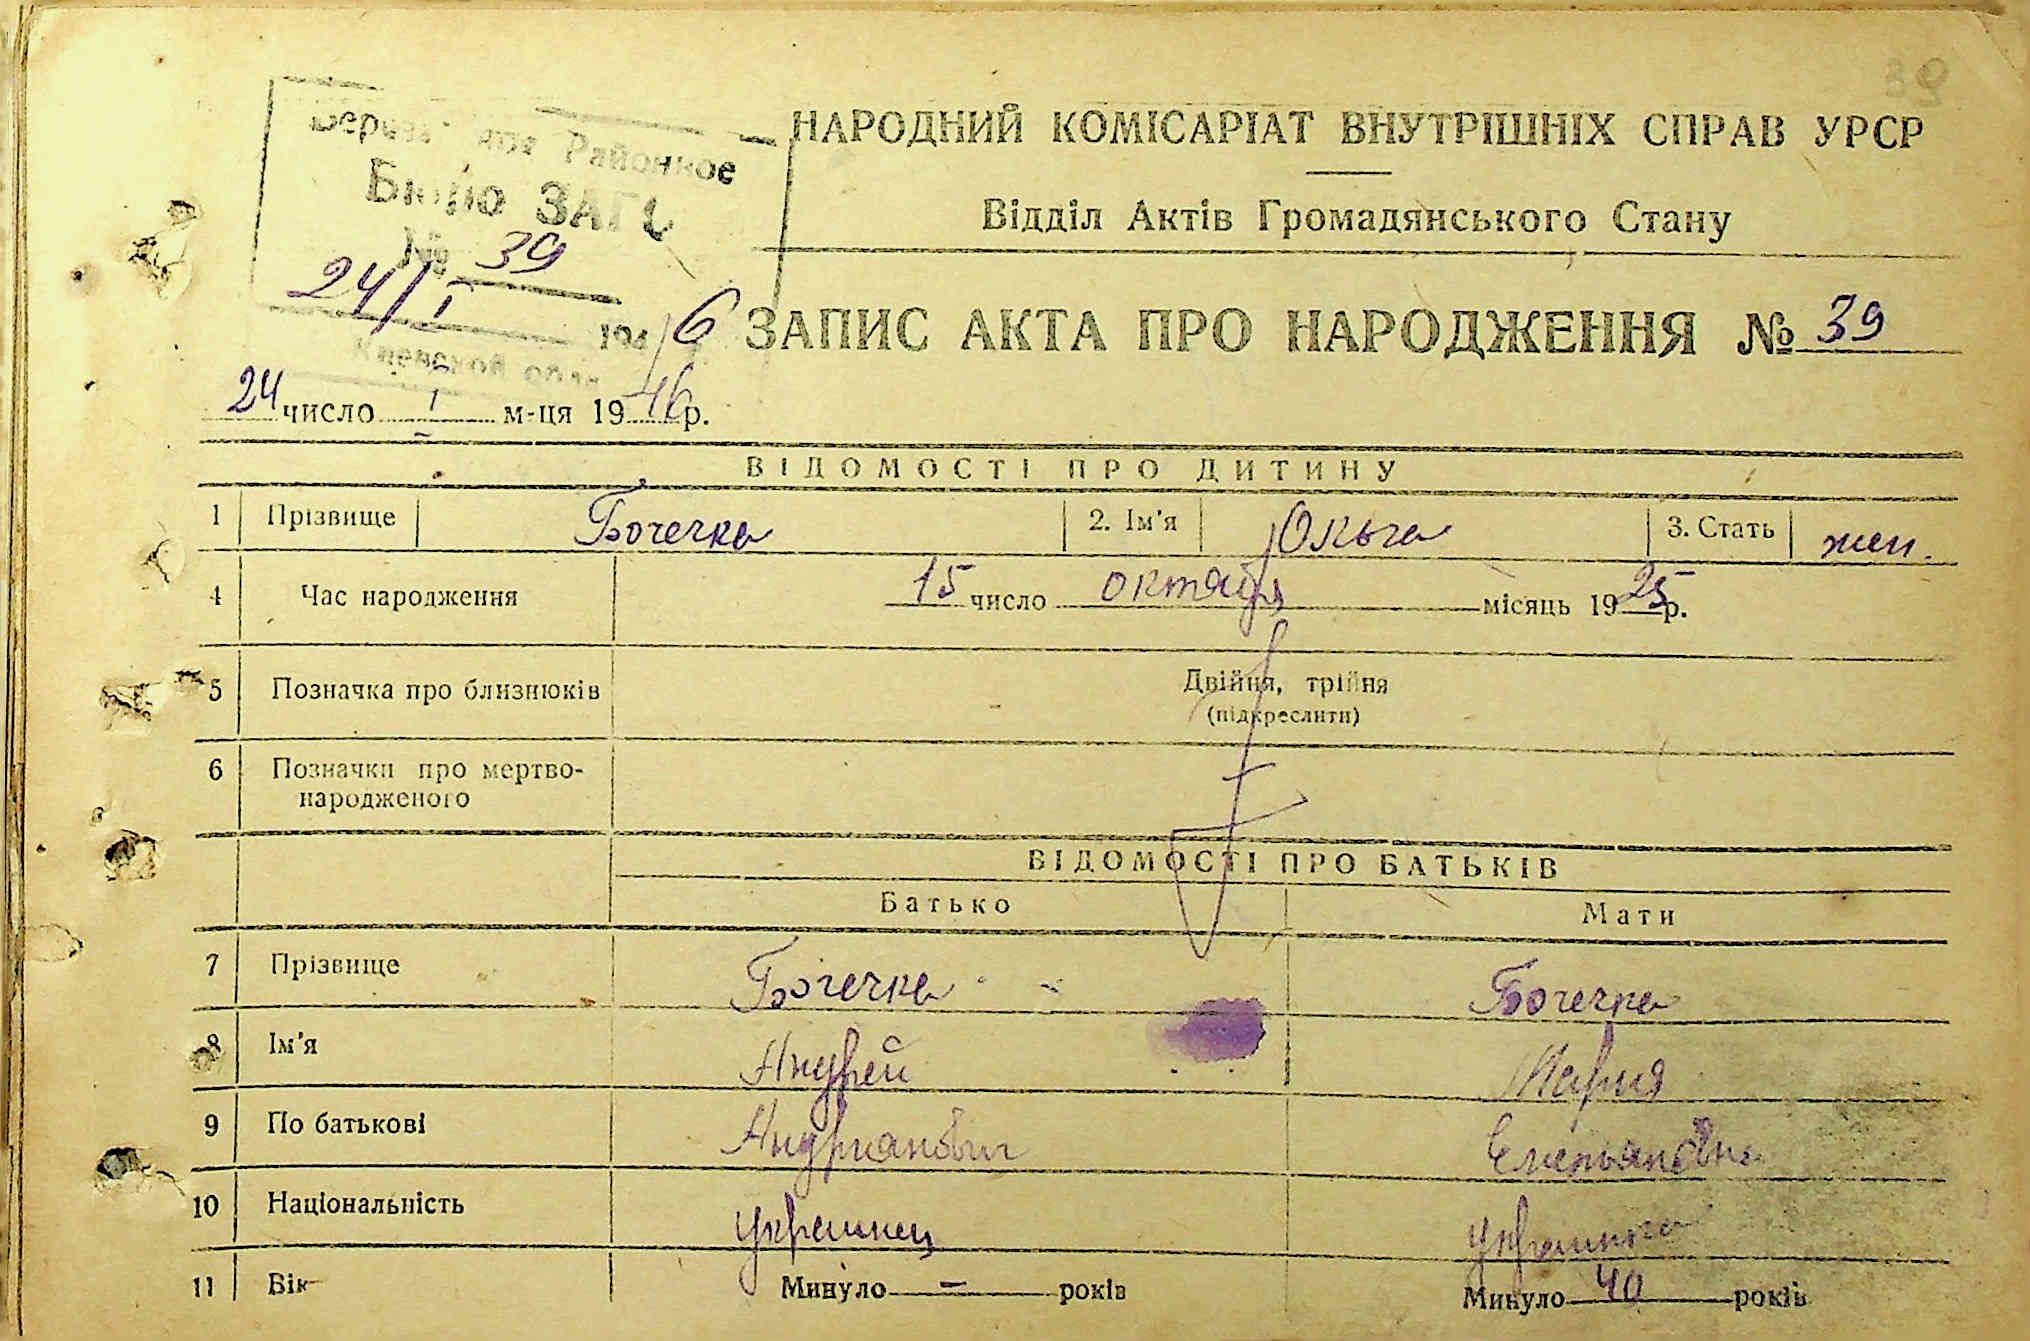 39
Районное
Бюро ЗАГС
№ 39
24/I 1946
Киевской обл.
НАРОДНИЙ КОМІСАРІАТ ВНУТРІШНІХ СПРАВ УРСР
Відділ Актів Громадянського Стану
ЗАПИС АКТА ПРО НАРОДЖЕННЯ № 39
24 число I м-ця 1946 р.
ВІДОМОСТІ ПРО ДИТИНУ
1 Прізвище Бочечка 2. Ім'я Ольга 3. Стать жен.
4 Час народження 15 число октября місяць 1925 р.
5 Позначка про близнюків Двійня, трійня
(підкреслити)
6 Позначки про мертво-
народженого
ВІДОМОСТІ ПРО БАТЬКІВ
Батько Мати
7 Прізвище Бочечка Бочечка
8 Ім'я Андрей Мария
9 По батькові Андрианович Емельяновна
10 Національність украинец украинка
11 Вік Минуло — років Минуло 40 років